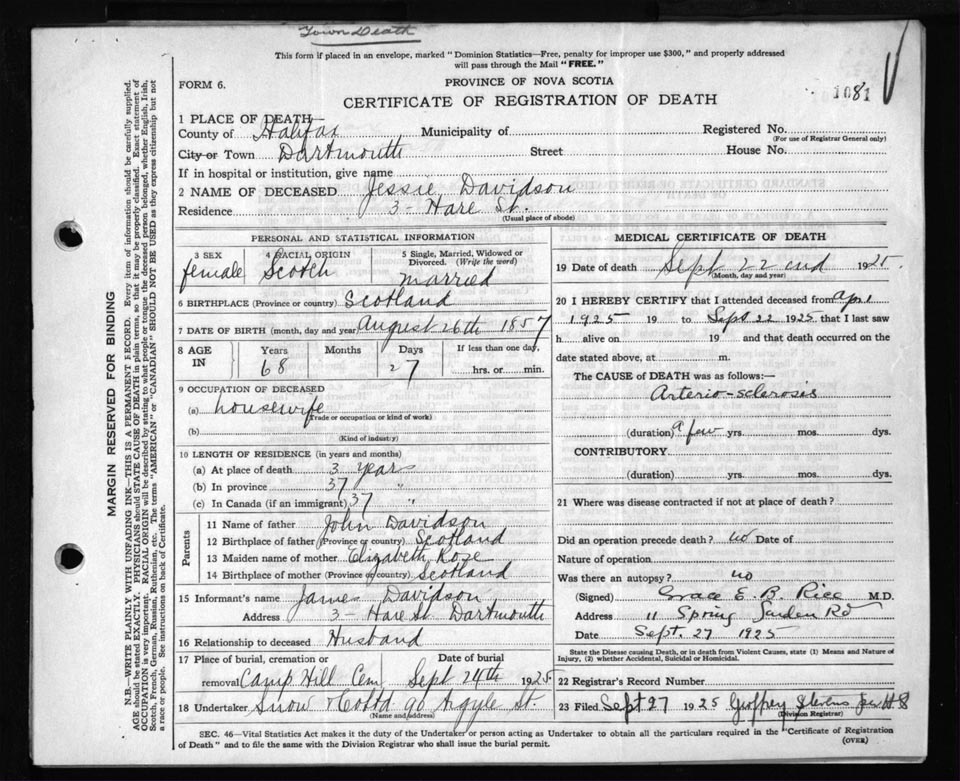 Town Death
This form if placed in an envelope, marked "Dominion Statistics—Free, penalty for improper use $300," and properly addressed
will pass through the Mail "FREE."
FORM 6.
PROVINCE OF NOVA SCOTIA
1081
CERTIFICATE OF REGISTRATION OF DEATH
1 PLACE OF DEATH—
County of Halifax Municipality of Registered No.
(For use of Registrar General only)
City or Town Dartmouth Street House No.
If in hospital or institution, give name
2 NAME OF DECEASED Jessie Davidson
Residence 3 - Hare St.
(Usual place of abode)
PERSONAL AND STATISTICAL INFORMATION
3 SEX 4 RACIAL ORIGIN 5 Single, Married, Widowed or
Divorced. (Write the word)
female Scotch married
6 BIRTHPLACE (Province or country) Scotland
7 DATE OF BIRTH (month, day and year) August 26th 1857
8 AGE IN Years Months Days If less than one day,
68 27 hrs. or min.
9 OCCUPATION OF DECEASED
(a) housewife
(Trade or occupation or kind of work)
(b)
(Kind of industry)
10 LENGTH OF RESIDENCE (in years and months)
(a) At place of death 3 years
(b) In province 37 "
(c) In Canada (if an immigrant) 37 "
Parents
11 Name of father John Davidson
12 Birthplace of father (Province or country) Scotland
13 Maiden name of mother Elizabeth Rose
14 Birthplace of mother (Province or country) Scotland
15 Informant's name James Davidson
Address 3 - Hare St Dartmouth
16 Relationship to deceased Husband
17 Place of burial, cremation or Date of burial
removal Camp Hill Cem Sept 24th 1925
18 Undertaker Snow & Co Ltd 90 Argyle St.
(Name and address)
MEDICAL CERTIFICATE OF DEATH
19 Date of death Sept 22nd 1925.
(Month, day and year)
20 I HEREBY CERTIFY that I attended deceased from Apr 1
1925 19 to Sept 22 1925 that I last saw
h alive on 19 and that death occurred on the
date stated above, at m.
The CAUSE of DEATH was as follows:—
Arterio-sclerosis
(duration) a few yrs. mos. dys.
CONTRIBUTORY
(duration) yrs. mos. dys.
21 Where was disease contracted if not at place of death?
Did an operation precede death? no Date of
Nature of operation
Was there an autopsy? no
(Signed) Grace E. B. Rice M.D.
Address 11 Spring Garden Rd
Date Sept. 27 1925
State the Disease causing Death, or in death from Violent Causes, state (1) Means and Nature of
Injury, (2) whether Accidental, Suicidal or Homicidal.
22 Registrar's Record Number
23 Filed Sept 27 1925 Geoffrey Stevens
(Division Registrar)
SEC. 46—Vital Statistics Act makes it the duty of the Undertaker or person acting as Undertaker to obtain all the particulars required in the "Certificate of Registration
of Death" and to file the same with the Division Registrar who shall issue the burial permit.
(OVER)
MARGIN RESERVED FOR BINDING
N.B.—WRITE PLAINLY WITH UNFADING INK—THIS IS A PERMANENT RECORD. Every item of information should be carefully supplied.
AGE should be stated EXACTLY. PHYSICIANS should STATE CAUSE OF DEATH in plain terms, so that it may be properly classified. Exact statement of
OCCUPATION is very important. RACIAL ORIGIN will be described by stating to what people or tongue the deceased person belonged, whether English, Irish,
Scotch, French, German, Russian, Ruthenian, etc. The terms "AMERICAN" or "CANADIAN" SHOULD NOT BE USED as they express citizenship but not
a race or people. See instructions on back of Certificate.